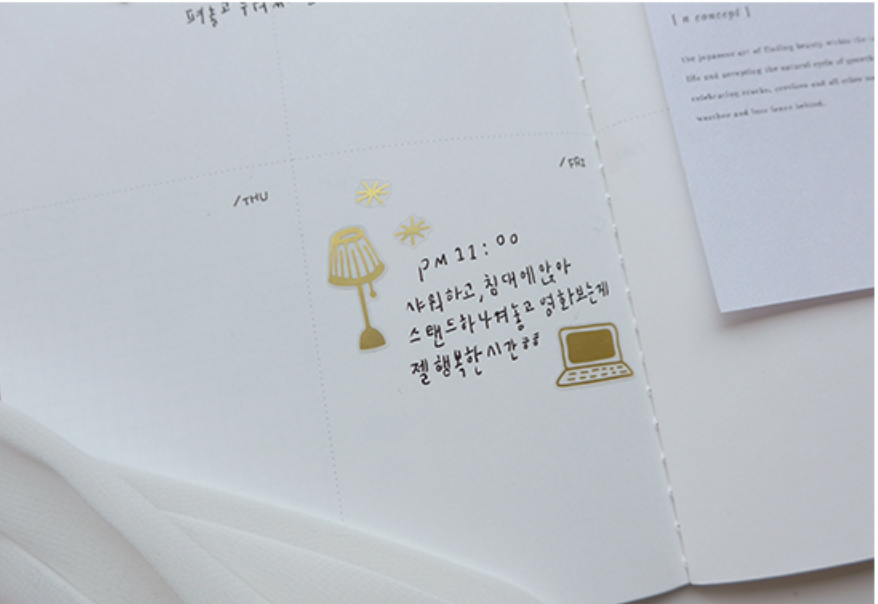 펴놓고
[ n concept ]
the japanese art of finding beauty within the
life and accepting the natural cycle of growth
celebrating cracks, crevices and all other
weather and love leave behind.
/THU
/FRI
PM 11:00
샤워하고, 침대에 앉아
스탠드하나켜놓고 영화보는게
젤 행복한 시간ㅎㅎ